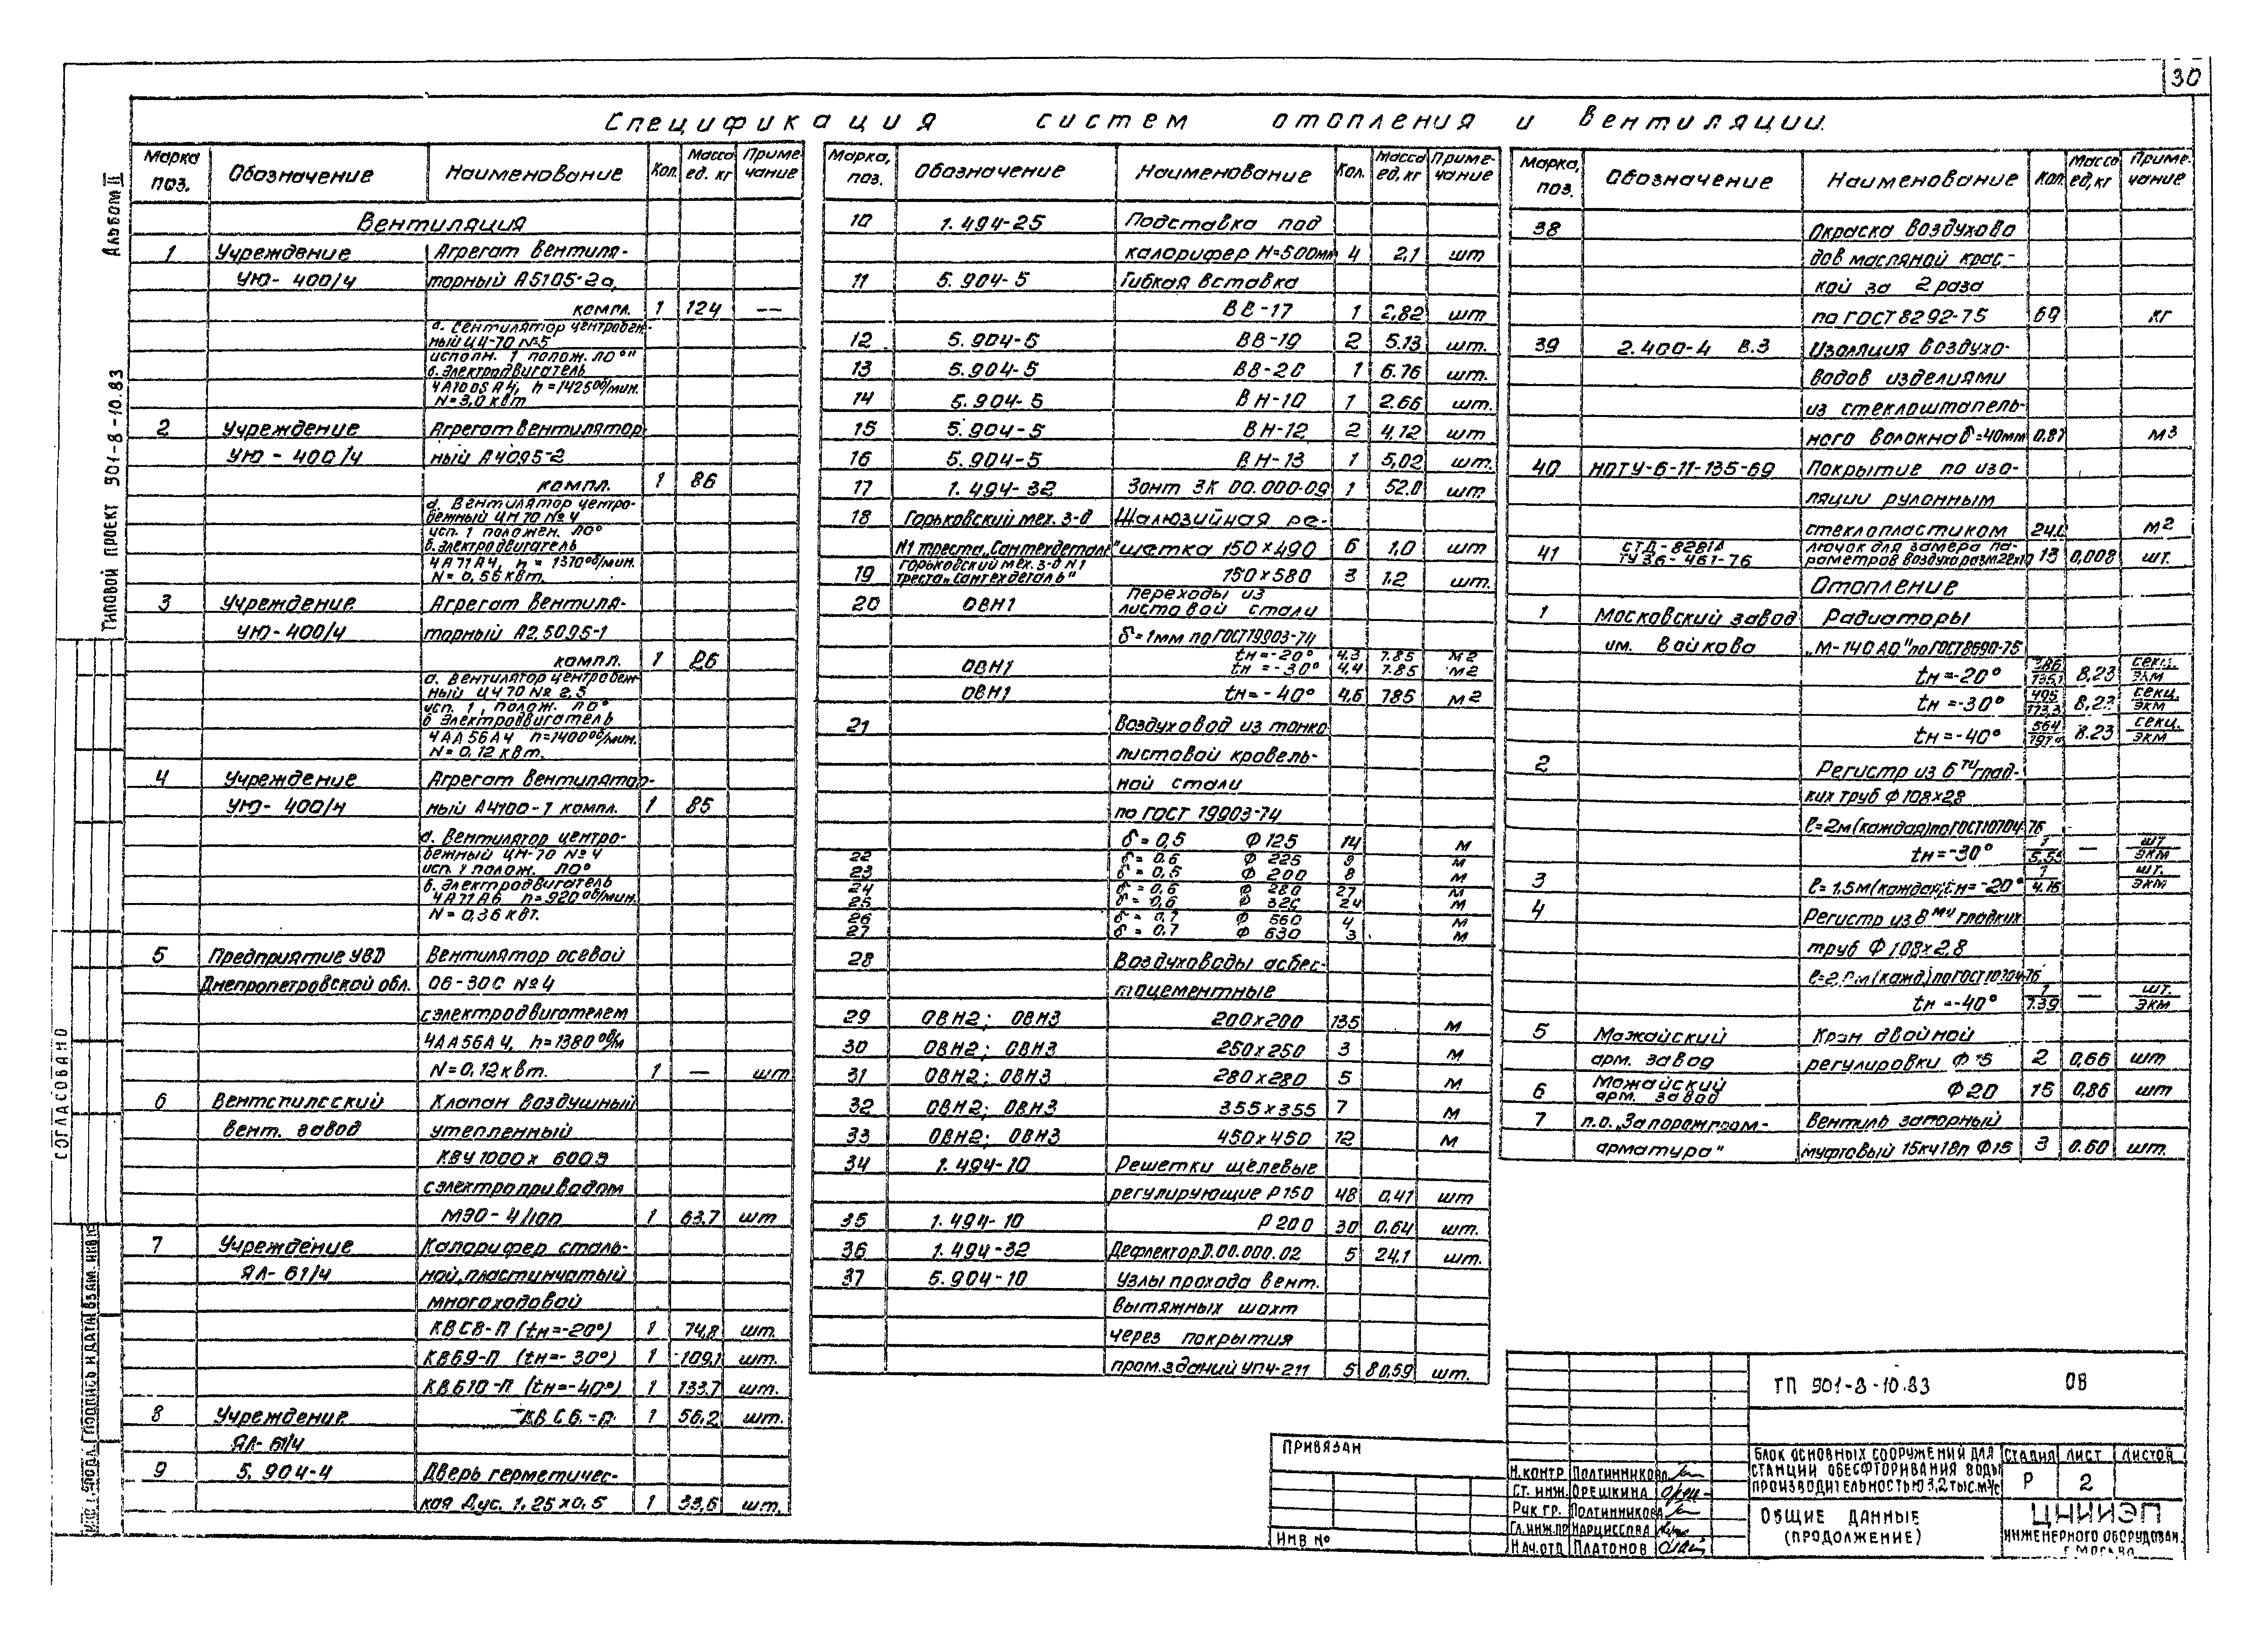 30
Спецификация систем отопления и вентиляции.
Альбом II
Типовой проект 901-8-10.83
Согласовано
Марка поз. Обозначение Наименование Кол. Масса ед. кг Примечание
Вентиляция
1 Учреждение Агрегат вентиля-
УЮ-400/4 торный А5105-2а,
компл. 1 124 —
а. Вентилятор центробеж-
ный Ц4-70 №5
исполн. 1 полож. Л0°"
б. Электродвигатель
4А100S А4, n=1425 об/мин.
N=3,0 квт
2 Учреждение Агрегат вентилятор-
УЮ-400/4 ный А4095-2
компл. 1 86
а. Вентилятор центро-
бежный Ц4 70 №4
исп. 1 положен. Л0°
б. Электродвигатель
4А71А4, n = 1370 об/мин.
N= 0,55 квт.
3 Учреждение Агрегат вентиля-
УЮ-400/4 торный А2,5095-1
компл. 1 26
а. Вентилятор центробеж-
ный Ц4 70 № 2,5
исп. 1, полож. Л0°
б Электродвигатель
4АА56А4 n=1400 об/мин.
N= 0,12 квт.
4 Учреждение Агрегат вентилятор-
УЮ-400/4 ный А4100-1 компл. 1 85
а. Вентилятор центро-
бежный Ц4-70 №4
исп 1 полож. Л0°
б. Электродвигатель
4А71А6 n=920 об/мин.
N= 0,36 квт.
5 Предприятие УВД Вентилятор осевой
Днепропетровской обл. 06-300 №4
с электродвигателем
4АА56А4, n=1380 об/м
N=0,12 квт. 1 — шт
6 Вентспилсский Клапан воздушный
вент. завод утепленный
КВУ 1000 х 600Э
с электроприводом
МЭО-4/100 1 63,7 шт
7 Учреждение Калорифер сталь-
ЯЛ-61/4 ной, пластинчатый
многоходовой
КВС8-П (tн=-20°) 1 74,8 шт.
КВБ9-П (tн=-30°) 1 109,1 шт.
КВБ10-П (tн=-40°) 1 133,7 шт.
8 Учреждение КВС6.-П 1 56,2 шт.
ЯЛ-61/4
9 5.904-4 Дверь герметичес-
кая Дус. 1,25х0,5 1 33,6 шт.
Марка, поз. Обозначение Наименование Кол. Масса ед, кг Примечание
10 1.494-25 Подставка под
калорифер Н=500мм 4 2,1 шт
11 5.904-5 Гибкая вставка
ВВ-17 1 2,82 шт
12 5.904-5 ВВ-19 2 5.13 шт.
13 5.904-5 ВВ-20 1 6.76 шт.
14 5.904-5 ВН-10 1 2.66 шт.
15 5.904-5 ВН-12 2 4,12 шт
16 5.904-5 ВН-13 1 5,02 шт.
17 1.494-32 Зонт ЗК 00.000-09 1 52.0 шт
18 Горьковский мех. з-д Жалюзийная ре-
N1 треста „Сантехдеталь" шетка 150×490 6 1,0 шт
Горьковский мех. з-д N1
19 треста „Сантехдеталь" 150×580 3 1,2 шт.
20 ОВН1 Переходы из
листовой стали
δ=1мм по ГОСТ 19903-74
tн=-20° 4,3 7.85 м2
ОВН1 tн=-30° 4,4 7.85 м2
ОВН1 tн=-40° 4,6 785 м2
21 Воздуховод из тонко
листовой кровель-
ной стали
по ГОСТ 19903-74
δ = 0,5 Ф 125 14 м
22 δ = 0,6 Ф 225 9 м
23 δ = 0,5 Ф 200 8 м
24 δ = 0,6 Ф 280 27 м
25 δ = 0,6 Ф 320 24 м
26 δ = 0,7 Ф 560 4 м
27 δ = 0,7 Ф 630 3 м
28 Воздуховоды асбес-
тоцементные
29 ОВН2; ОВН3 200×200 135 м
30 ОВН2; ОВН3 250×250 3 м
31 ОВН2; ОВН3 280×280 5 м
32 ОВН2; ОВН3 355×355 7 м
33 ОВН2; ОВН3 450×450 12 м
34 1.494-10 Решетки щелевые
регулирующие Р150 48 0,41 шт
35 1.494-10 Р200 30 0.64 шт.
36 1.494-32 Дефлектор Д.00.000.02 5 24,1 шт.
37 5.904-10 Узлы прохода вент.
вытяжных шахт
через покрытия
пром.зданий УП4-211 5 80,59 шт.
Марка, поз. Обозначение Наименование Кол. Масса ед, кг Примечание
38 Окраска воздухово
дов масляной крас-
кой за 2 раза
по ГОСТ 8292-75 69 кг
39 2.400-4 В.3 Изоляция воздухо-
водов изделиями
из стеклоштапель-
ного волокна δ=40мм 0,87 м3
40 МРТУ-6-11-135-69 Покрытие по изо-
ляции рулонным
стеклопластиком м2
41 СТД-8281А Лючок для замера па-
ТУ 36-461-76 раметров воздуха 13 0,008 шт.
Отопление
1 Московский завод Радиаторы
им. Войкова „М-140 АО" по ГОСТ 8690-75
tн=-20° 386/135,1 8,23 секц./экм
tн=-30° 495/173,3 8,23 секц./экм
tн=-40° 564 8.23 секц./экм
2 Регистр из 6ти глад-
ких труб Ф 108×2,8
ℓ=2м (каждая) по ГОСТ 10704-76
tн=-30° 1 — шт/экм
3 ℓ=1,5м (каждая); tн=-20° 1 шт./экм
4 Регистр из 8ми гладких
труб Ф 108×2,8
ℓ=2,0м (кажд.) по ГОСТ 10704-76
tн=-40° 1/7.39 — шт./экм
5 Можайский Кран двойной
арм. завод регулировки Ф 15 2 0,66 шт
6 Можайский
арм. завод Ф 20 15 0,86 шт
7 п.о. „Запорожпром- Вентиль запорный
арматура" муфтовый 15кч18п Ф15 3 0.60 шт.
Привязан
Инв №
ТП 901-8-10.83 ОВ
Блок основных сооружений для
станции обесфторивания воды
производительностью 3,2 тыс.м³/с
Стадия Лист Листов
Р 2
Общие данные
(продолжение)
ЦНИИЭП
инженерного оборудован.
г. Москва
Н.контр Полтинникова
Ст. инж. Орешкина
Рук гр. Полтинникова
Гл.инж.пр Нарциссова
Нач.отд Платонов
Подпись и дата Взам. инв. №